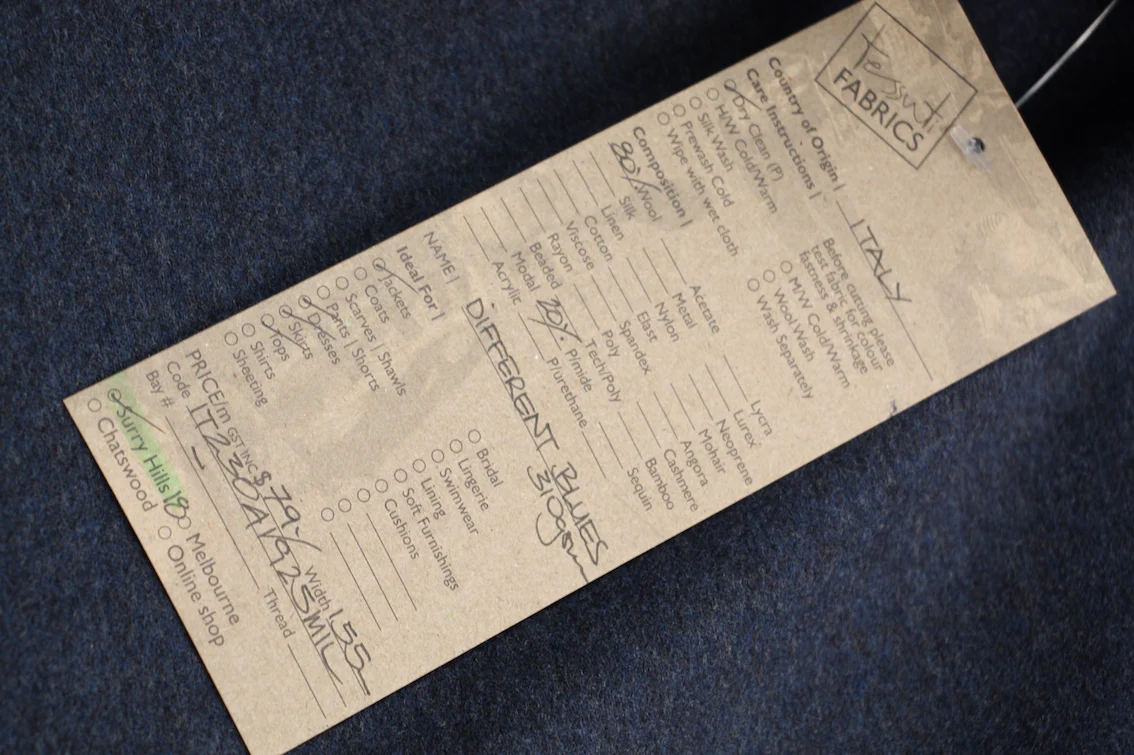 tessuti
FABRICS
Country of Origin | ITALY
Care Instructions |
Dry Clean (P)
H/W Cold/Warm
Silk Wash
Prewash Cold
Wipe with wet cloth
Before cutting please
test fabric for colour
fastness & shrinkage
M/W Cold/Warm
Wool Wash
Wash Separately
Composition |
80% Wool
Silk
Linen
Cotton
Viscose
Rayon
Beaded
Modal
Acrylic
Acetate
Metal
Nylon
Elast
Spandex
Poly
Tech/Poly
20% P/mide
P/urethane
Lycra
Lurex
Neoprene
Mohair
Angora
Cashmere
Bamboo
Sequin
NAME | DIFFERENT BLUES
310gsm
Ideal For |
Jackets
Coats
Scarves | Shawls
Pants | Shorts
Dresses
Skirts
Tops
Shirts
Sheeting
Bridal
Lingerie
Swimwear
Lining
Soft Furnishings
Cushions
PRICE/m GST INC $79 Width 155
Code IT230AV925MIL
Bay # Thread
Surry Hills Melbourne
Chatswood Online shop